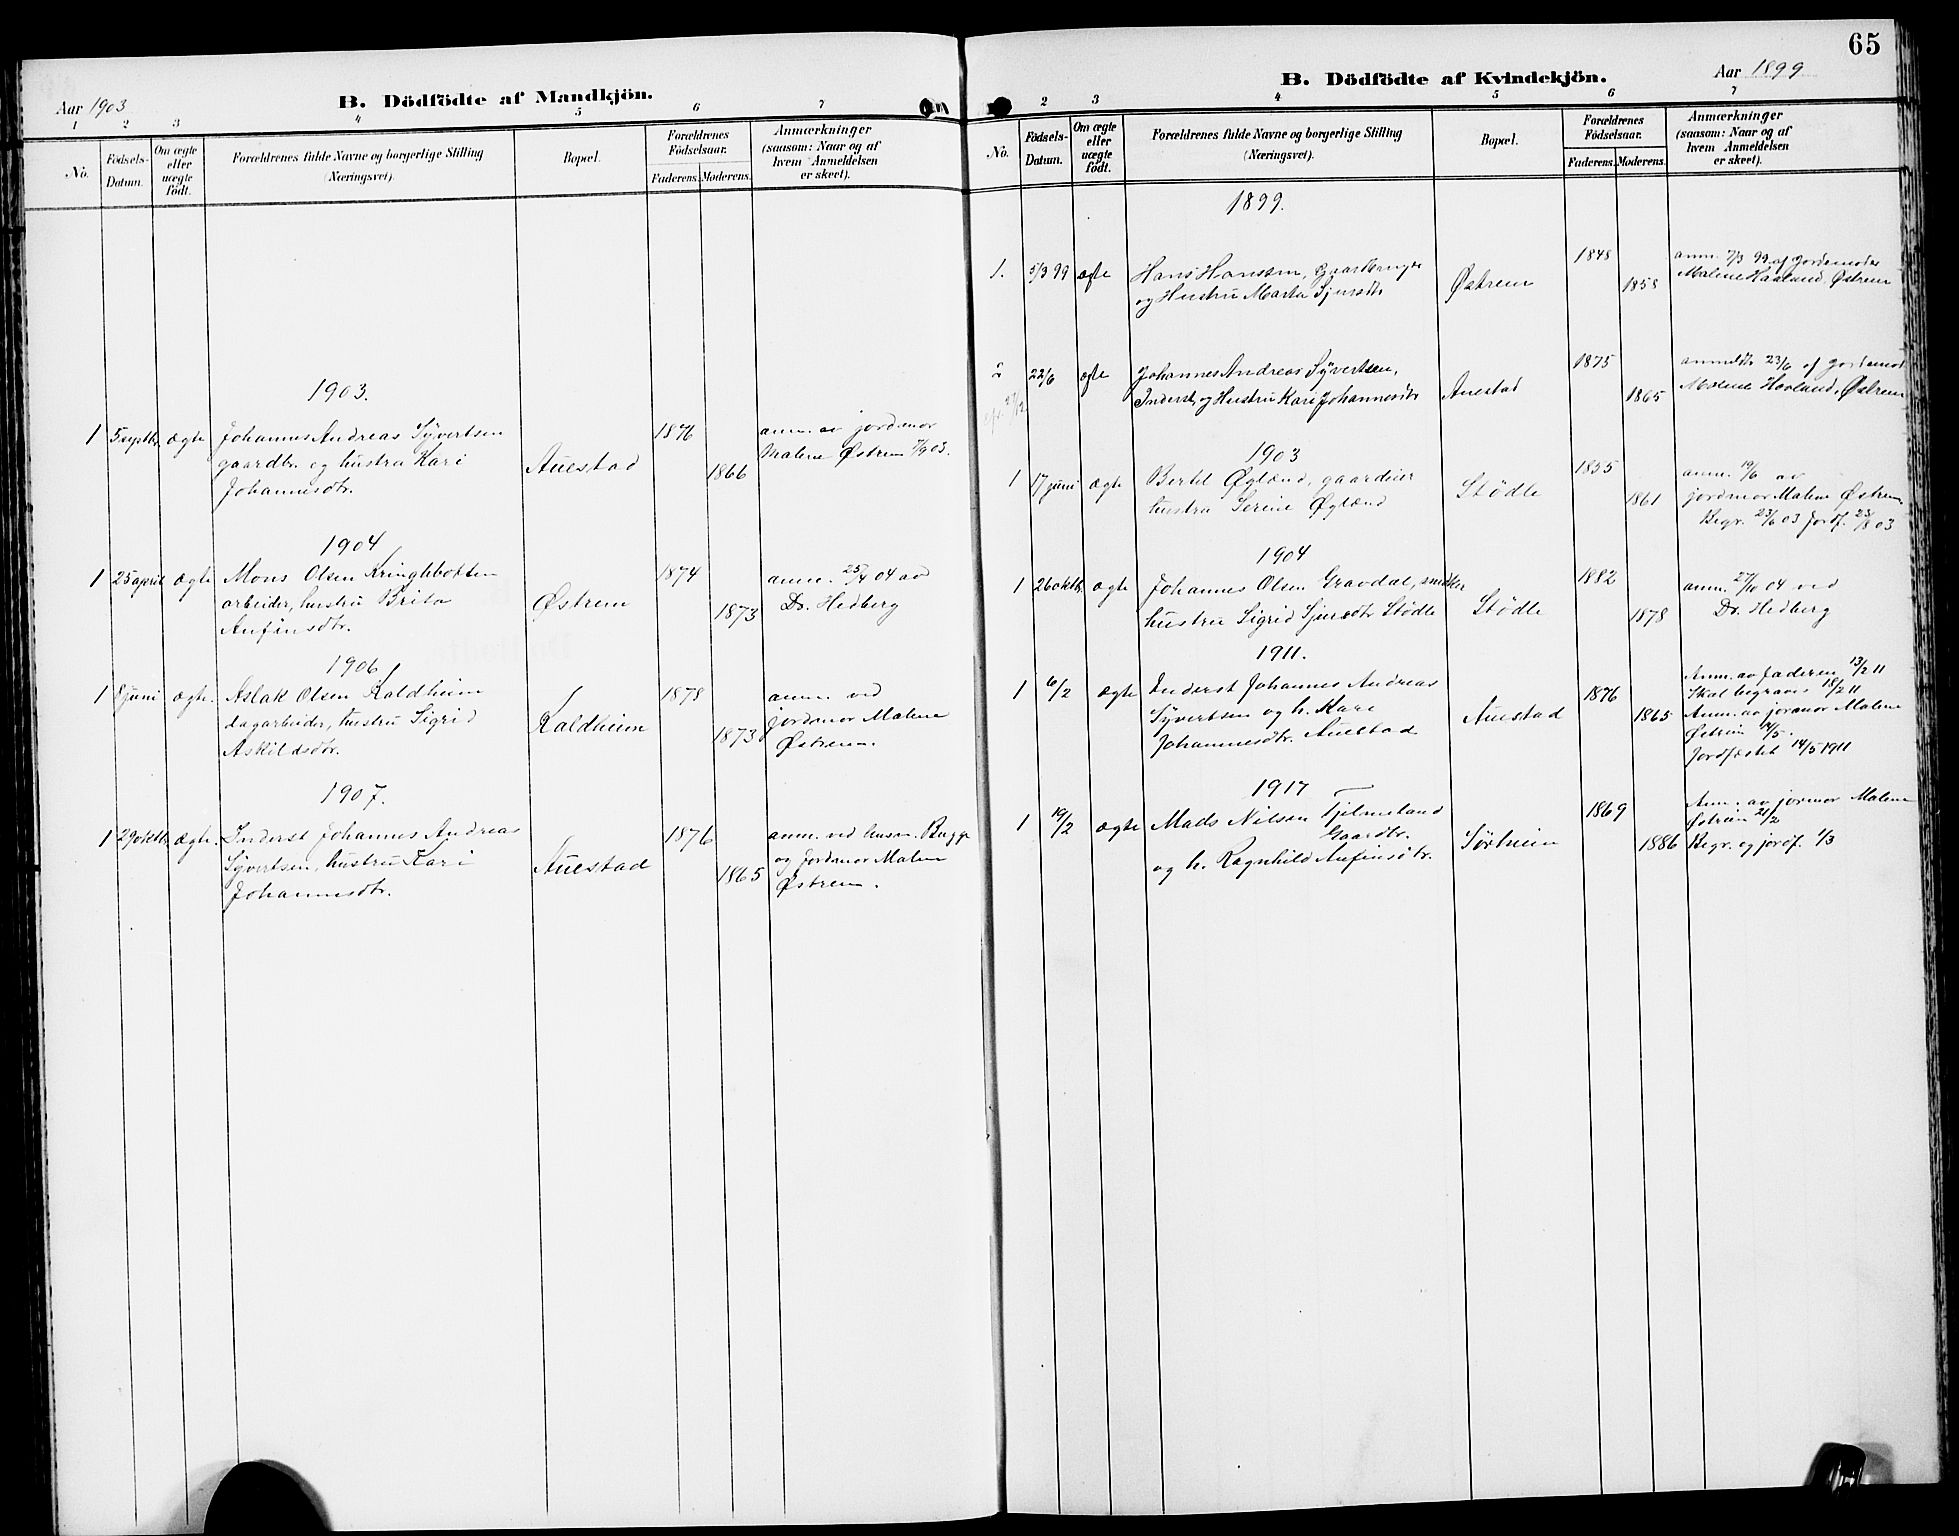 Aar 1903
B. Dödfödte af Mandkjön.
1 2 3 4 5 6 7
No.
Födsels-
Datum.
Om ægte
eller
uægte
födt.
Forældrenes fulde Navne og borgerlige Stilling
(Næringsvei).
Bopæl.
Forældrenes
Födselsaar.
Faderens. Moderens.
Anmærkninger
(saasom: Naar og af
hvem Anmeldelsen
er skeet).
1903.
1 5 septbr. ægte Johannes Andreas Syvertsen 1876 anm. av jordmor
gaardbr. og hustru Kari Auestad 1866 Malene Østrem 7/9 03.
Johannesdtr.
1904
1 25 april ægte Mons Olsen Kringlebotten 1874 anm. 25/4 04 av
arbeider, hustru Brita Østrem 1873 Dr. Hedberg
Anfinsdtr.
1906
1 8 juni ægte. Aslak Olsen Kaldheim 1878 anm. ved
dagarbeider, hustru Sigrid Kaldheim 1873 jordmor Malene
Askildsdtr. Østrem.
1907.
1 29 oktbr. ægte. Inderst Johannes Andreas 1876 anm. ved husm. Bugge
Syvertsen, hustru Kari Auestad 1865 og jordmor Malene
Johannesdtr. Østrem.
65
B. Dödfödte af Kvindekjön.
Aar 1899
2 3 4 5 6 7
No.
Födsels-
Datum.
Om ægte
eller
uægte
födt.
Forældrenes fulde Navne og borgerlige Stilling
(Næringsvei).
Bopæl.
Forældrenes
Födselsaar.
Faderens. Moderens.
Anmærkninger
(saasom: Naar og af
hvem Anmeldelsen
er skeet).
1899.
1. 5/3 99 ægte Hans Hanssen, Gaardbruger 1848 anm. 7/3 99 af Jordemoder
og Hustru Marta Sjursdtr Østrem 1858 Malene Haaland, Østrem
2 22/6 ægte Johannes Andreas Syvertsen, 1875 anmeldt 23/6 af Jordemod
27/12 Inderst, og Hustru Kari Johannesdtr Auestad 1865 Malene Haaland, Østrem
1903
1 17 juni ægte Bertel Øglænd, gaardeier 1855 anm. 19/6 av
hustru Serine Øglænd Stödle 1861 jordmor Malene Østrem.
Begr. 23/6 03 Jordf. 23/8 03
1904
1 26 oktbr. ægte Johannes Olsen Gravdal, snekker 1882 anm. 27/10 04 ved
hustru Sigrid Sjursdtr Stödle Stödle 1878 Dr. Hedberg
1911.
1 6/2 ægte Inderst Johannes Andreas 1876 Anm. av faderen 13/2 11
Syvertsen og h. Kari Auestad 1865 Skal begraves 18/2 11
Johannesdtr. Auestad Anm. av jormor Malene
Østrem 14/5.
Jordfæstet 14/5 1911
1917
1 19/2 ægte Mads Nilsen Tjelmeland 1869 Anm. av jormor Malene
Gaardbr. Østrem 21/2
og h. Ragnhild Anfinsdtr. Sørheim 1886 Begr. og jordf. 1/3